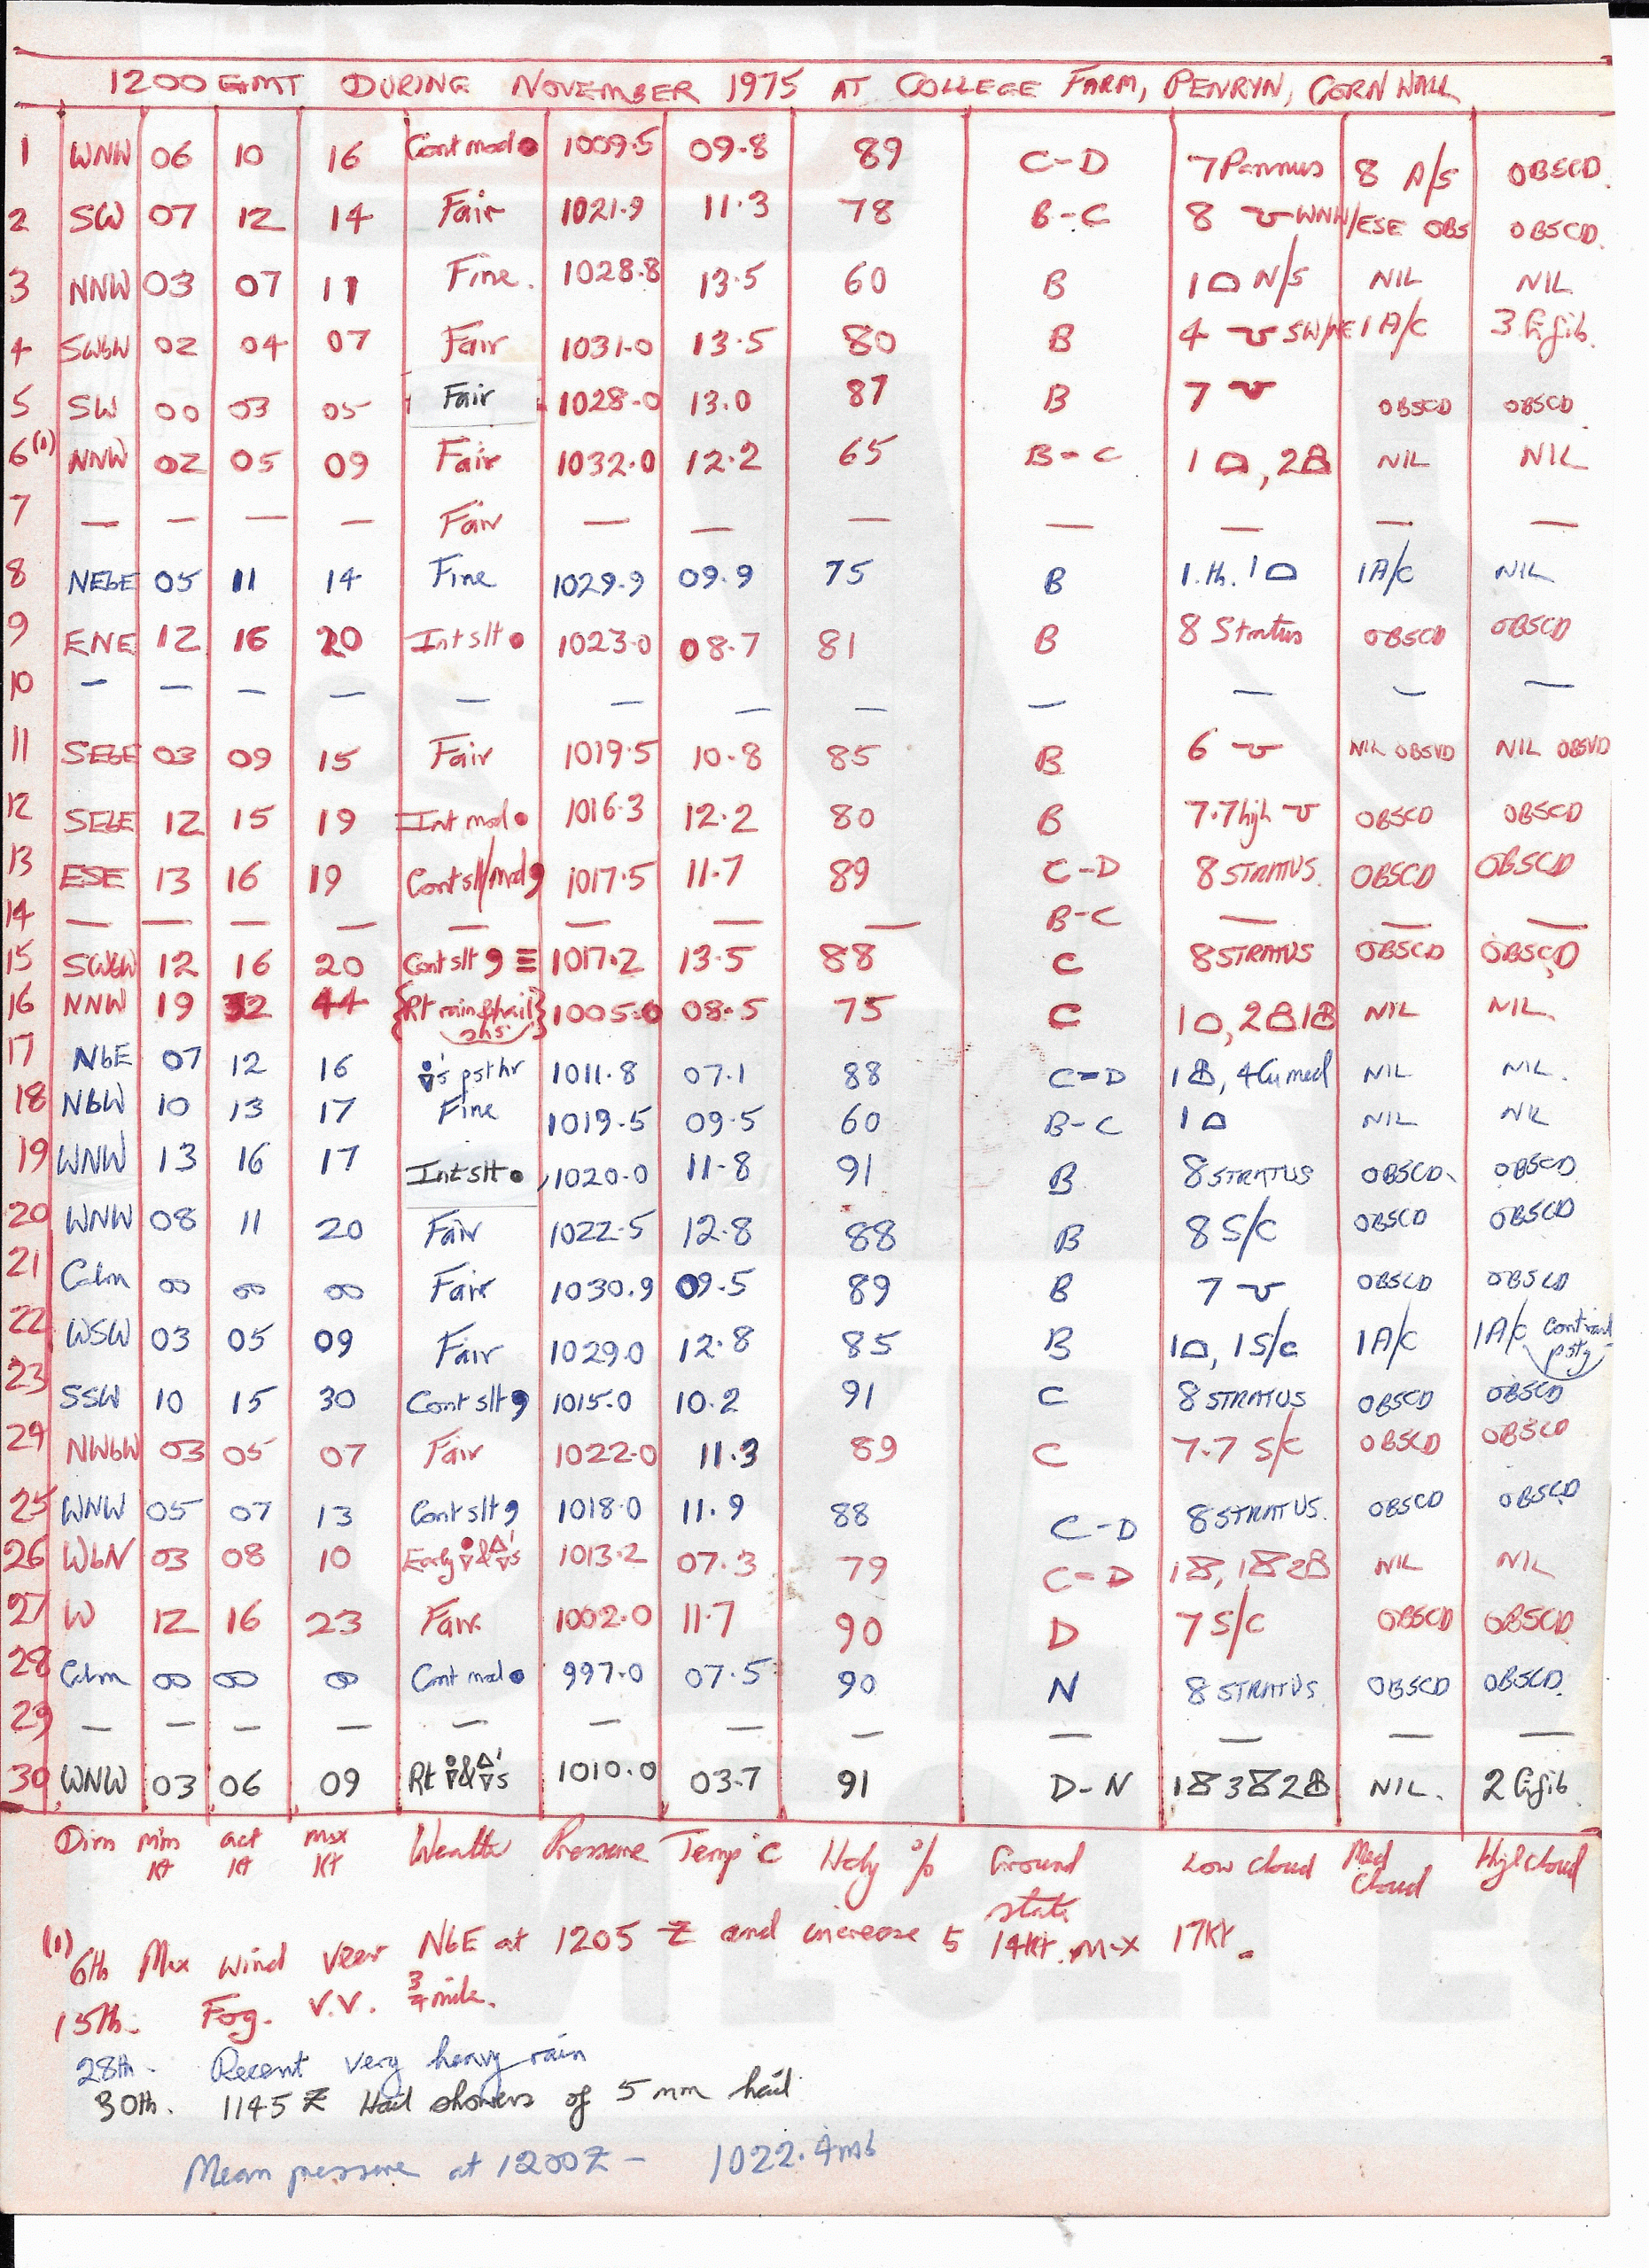 1200 GMT DURING NOVEMBER 1975 AT COLLEGE FARM, PENRYN, CORNWALL
1 WNW 06 10 16 Cont mod ● 1009.5 09.8 89 C-D 7 Pannus 8 A/S OBSCD.
2 SW 07 12 14 Fair 1021.9 11.3 78 B-C 8 WNW/ESE OBS OBSCD.
3 NNW 03 07 11 Fine. 1028.8 13.5 60 B 1 N/S NIL NIL
4 SWbW 02 04 07 Fair 1031.0 13.5 80 B 4 SW/NE 1 A/C 3 Ci fib.
5 SW 00 03 05 Fair 1028.0 13.0 87 B 7 OBSCD OBSCD
6(1) NNW 02 05 09 Fair 1032.0 12.2 65 B-C 1 , 2 NIL NIL
7 — — — — Fair — — — — — — —
8 NEbE 05 11 14 Fine 1029.9 09.9 75 B 1.th. 1 1A/C NIL
9 ENE 12 16 20 Int slt ● 1023.0 08.7 81 B 8 Stratus OBSCD OBSCD
10 — — — — — — — — — — — —
11 SEbE 03 09 15 Fair 1019.5 10.8 85 B 6 NIL OBSVD NIL OBSVD
12 SEbE 12 15 19 Int mod ● 1016.3 12.2 80 B 7.7 high OBSCD OBSCD
13 ESE 13 16 19 Cont sl/mod 9 1017.5 11.7 89 C-D 8 STRATUS. OBSCD OBSCD
14 — — — — — — — — B-C — — —
15 SWbW 12 16 20 Cont slt 9 ≡ 1017.2 13.5 88 C 8 STRATUS OBSCD OBSCD
16 NNW 19 32 44 {Rt rain & hail shs} 1005.0 08.5 75 C 1 , 2 1 NIL NIL.
17 NbE 07 12 16 's pst hr 1011.8 07.1 88 C=D 1 , 4 Cu med NIL NIL.
18 NbW 10 13 17 Fine 1019.5 09.5 60 B-C 1 NIL NIL
19 WNW 13 16 17 Int slt ● 1020.0 11.8 91 B 8 STRATUS OBSCD. OBSCD
20 WNW 08 11 20 Fair 1022.5 12.8 88 B 8 S/C OBSCD OBSCD
21 Calm 00 00 00 Fair 1030.9 09.5 89 B 7 OBSCD OBSCD
22 WSW 03 05 09 Fair 1029.0 12.8 85 B 1 , 1 S/C 1A/C 1A/C
23 SSW 10 15 30 Cont slt 9 1015.0 10.2 91 C 8 STRATUS OBSCD OBSCD
24 NWbW 03 05 07 Fair 1022.0 11.3 89 C 7.7 S/C OBSCD OBSCD
25 WNW 05 07 13 Cont slt 9 1018.0 11.9 88 C-D 8 STRATUS. OBSCD OBSCD
26 WbN 03 08 10 Early & s 1013.2 07.3 79 C=D 1 , 1 2 NIL NIL
27 W 12 16 23 Fair 1002.0 11.7 90 D 7 S/C OBSCD OBSCD
28 Calm 00 00 00 Cont mod ● 997.0 07.5 90 N 8 STRATUS OBSCD OBSCD.
29 — — — — — — — — — — — —
30 WNW 03 06 09 Rt & s 1010.0 03.7 91 D-N 1 3 2 NIL. 2 Ci fib.
Dirn min kt act kt max kt Weather Pressure Temp °C Hdy % Ground state Low Cloud Med Cloud High Cloud
(1) 6th Max wind veer NbE at 1205 Z and increase 5 14kt. max 17kt.
15th. Fog. V.V. 3/4 mile.
28th - Recent very heavy rain
30th. 1145 Z Hail showers of 5 mm hail.
Mean pressure at 1200Z - 1022.4mb